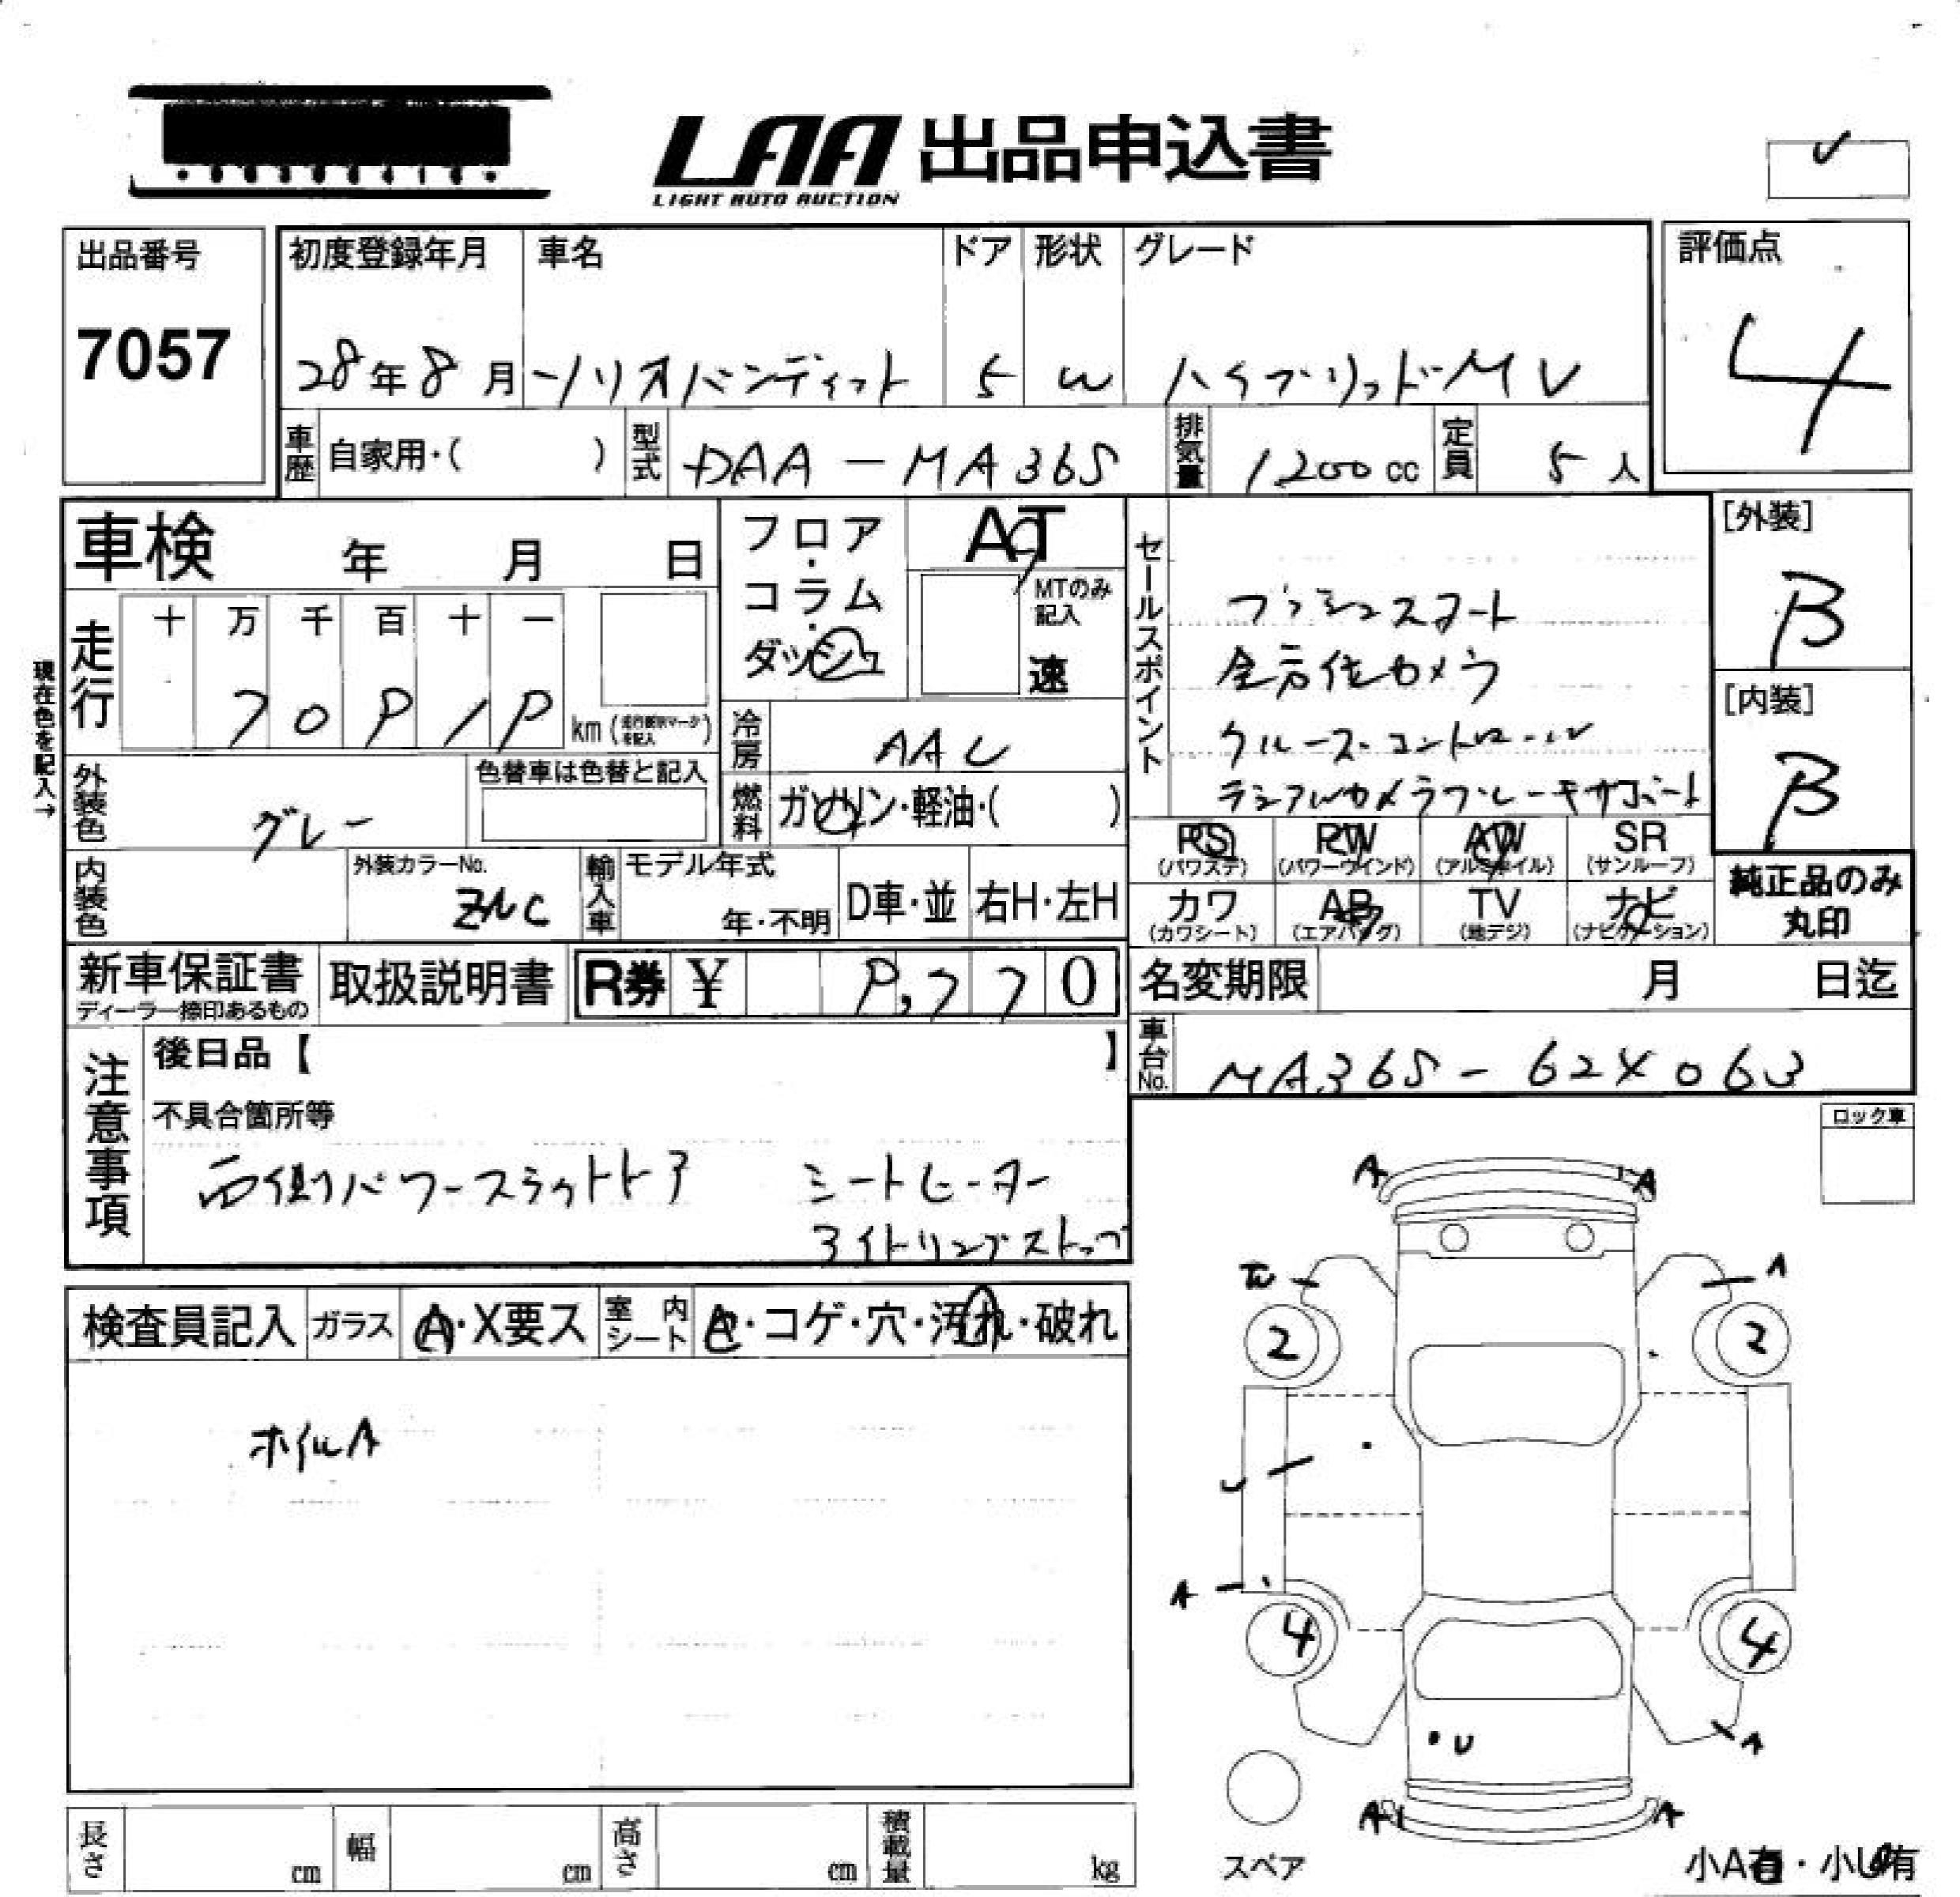 LAA 出品申込書
LIGHT AUTO AUCTION
出品番号
7057
初度登録年月
28年8月
車名
ソリオバンディット
ドア
5
形状
W
グレード
ハイブリッドMV
評価点
4
車歴 自家用・( )
型式 DAA-MA36S
排気量 1200cc
定員 5人
車検 年 月 日
フロア・コラム・ダッシュ
AT
MTのみ記入
速
現在色を記入→
走行
十 万 千 百 十 一
km
冷房 AAC
燃料 ガソリン・軽油・( )
外装色 グレー
色替車は色替と記入
内装色
外装カラーNo.
輸入車
モデル年式
年・不明
D車・並
右H・左H
セールスポイント
プッシュスタート
全方位カメラ
クルーズコントロール
デュアルカメラブレーキサポート
[外装]
B
[内装]
B
PS (パワステ)
PW (パワーウインド)
AW (アルミホイル)
SR (サンルーフ)
カワ (カワシート)
AB (エアバッグ)
TV (地デジ)
ナビ (ナビゲーション)
純正品のみ
丸印
新車保証書
ディーラー捺印あるもの
取扱説明書
R券 ¥
名変期限 月 日迄
車台No. MA36S-624063
注意事項
後日品【 】
不具合箇所等
両側パワースライドドア シートヒーター
アイドリングストップ
ロック車
検査員記入
ガラス A・X要ス
室内シート
・コゲ・穴・汚れ・破れ
ホイルA
A A
A
2 2
U
A
4 4
U A
A A
スペア
小A有・小U有
長さ cm
幅 cm
高さ cm
積載量 kg